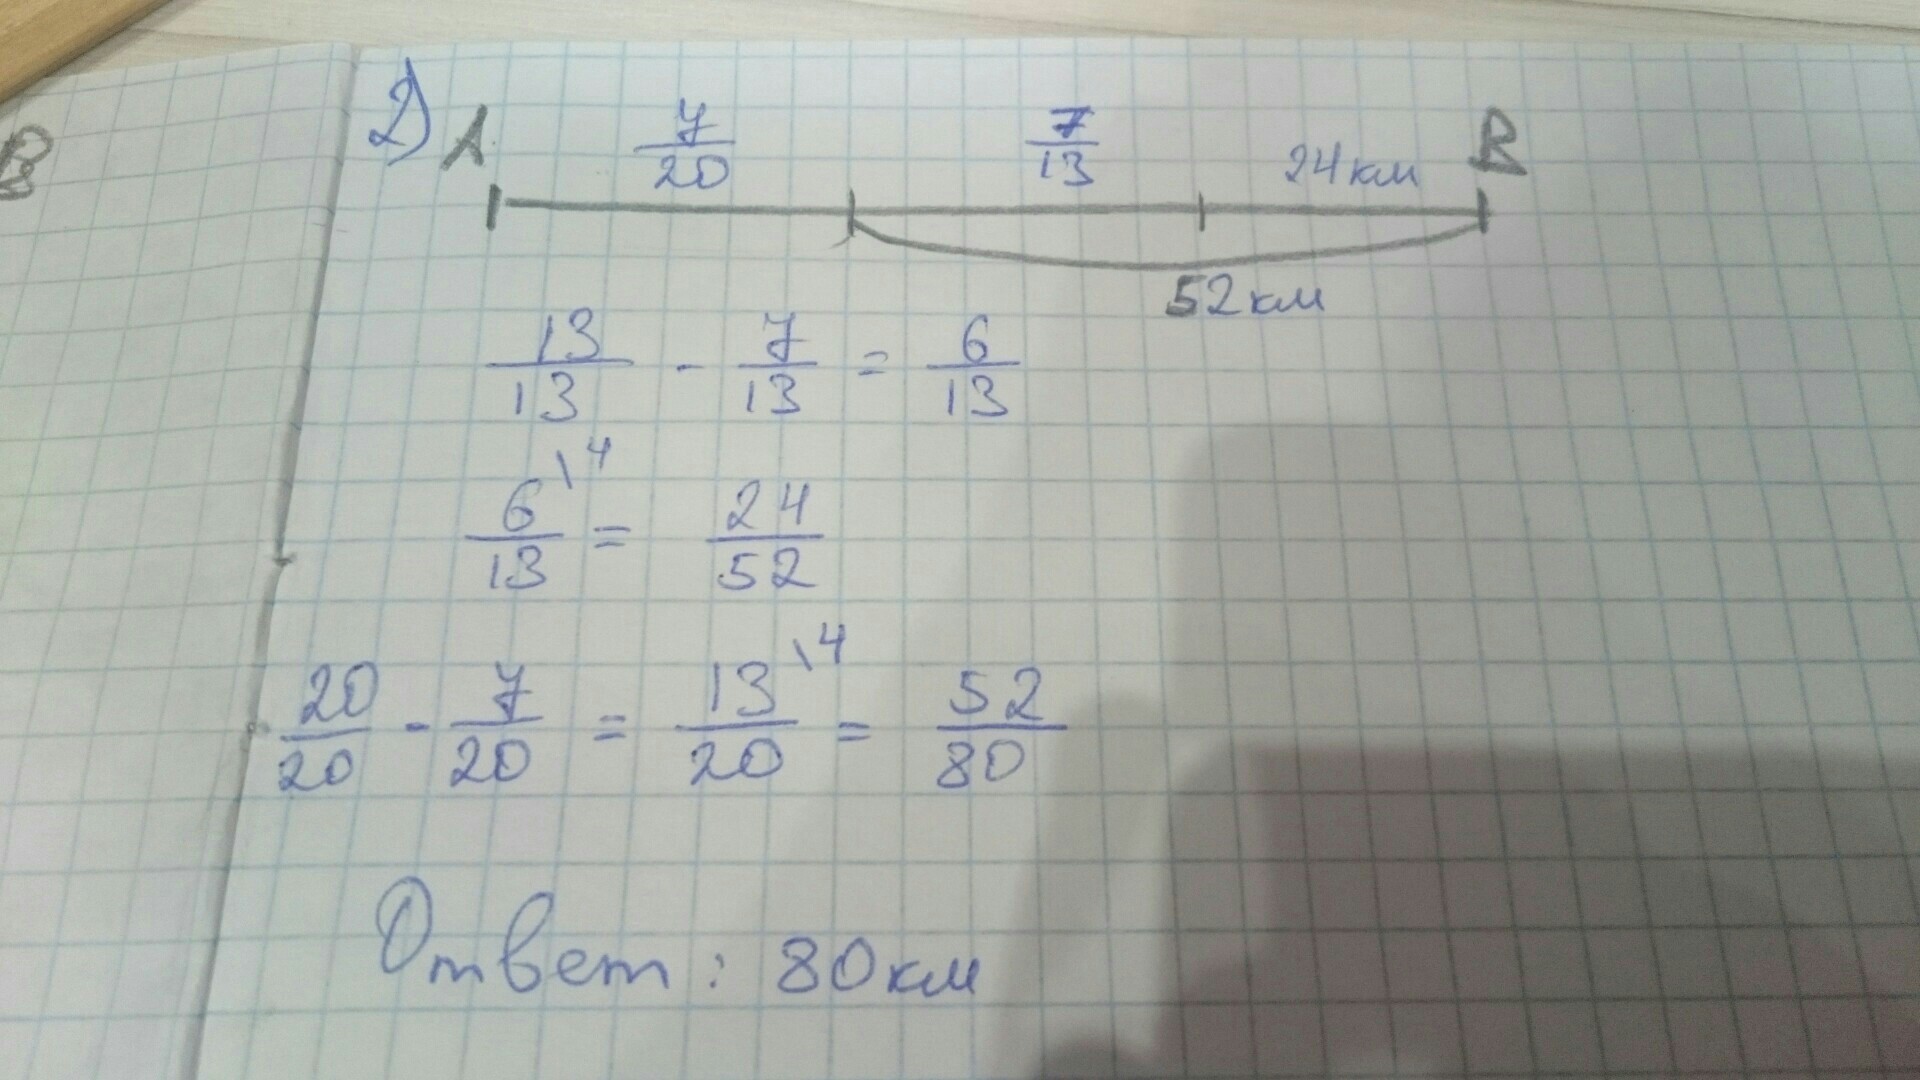 B
2) A 7/20 7/13 24 км B
52 км
13/13 - 7/13 = 6/13
6/13 \4 = 24/52
20/20 - 7/20 = 13/20 \4 = 52/80
Ответ: 80 км